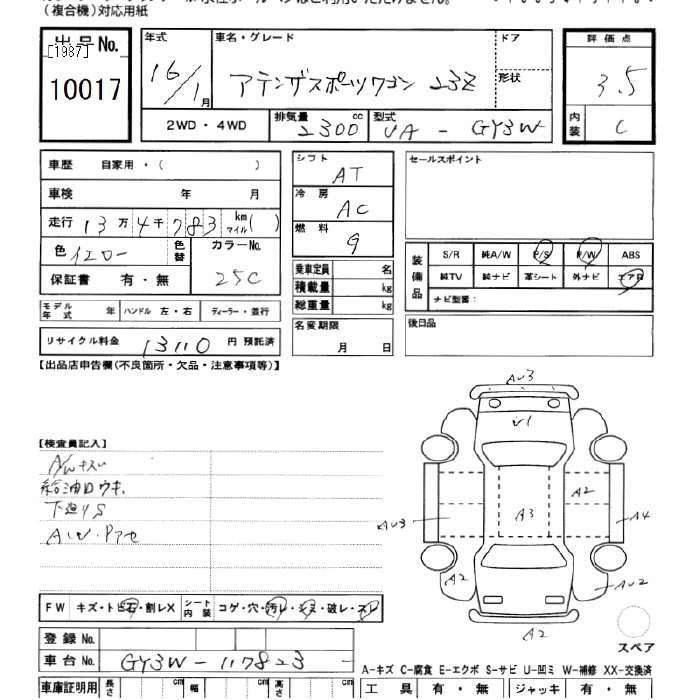 (複合機)対応用紙
出品No. 年式 車名・グレード ドア 評価点
[1987] 16/1月 アテンザスポーツワゴン 23Z 形状 3.5
10017
2WD・4WD 排気量 2300 cc 型式 UA - GY3W 内装 C
車歴 自家用・( ) シフト AT セールスポイント
車検 年 月 冷房 AC
走行 13万4千783 km マイル( ) 燃料 G
色 イエロー 色替 カラーNo. 25C
保証書 有・無
装備品 S/R 純A/W P/S P/W ABS
純TV 純ナビ 革シート 外ナビ エアB
ナビ型番:
乗車定員 名
積載量 kg
総重量 kg
モデル年式 年 ハンドル 左・右 ディーラー・並行
名変期限 月 日 後日品
リサイクル料金 13110 円 預託済
【出品店申告欄(不良箇所・欠品・注意事項等)】
AU3
U1
【検査員記入】
A/Wキズ
給油口ウキ.
下廻りS
A2
A3
AU3
A4
A2
AU2
A2
FW キズ・トビ石・割レX シート内装 コゲ・穴・汚レ・シミ・破レ・スレ
スペア
登録No.
車台No. GY3W-117823
A-キズ C-腐食 E-エクボ S-サビ U-凹ミ W-補修 XX-交換済
車庫証明用 長さ cm 幅 cm 高さ cm 工具 有・無 ジャッキ 有・無